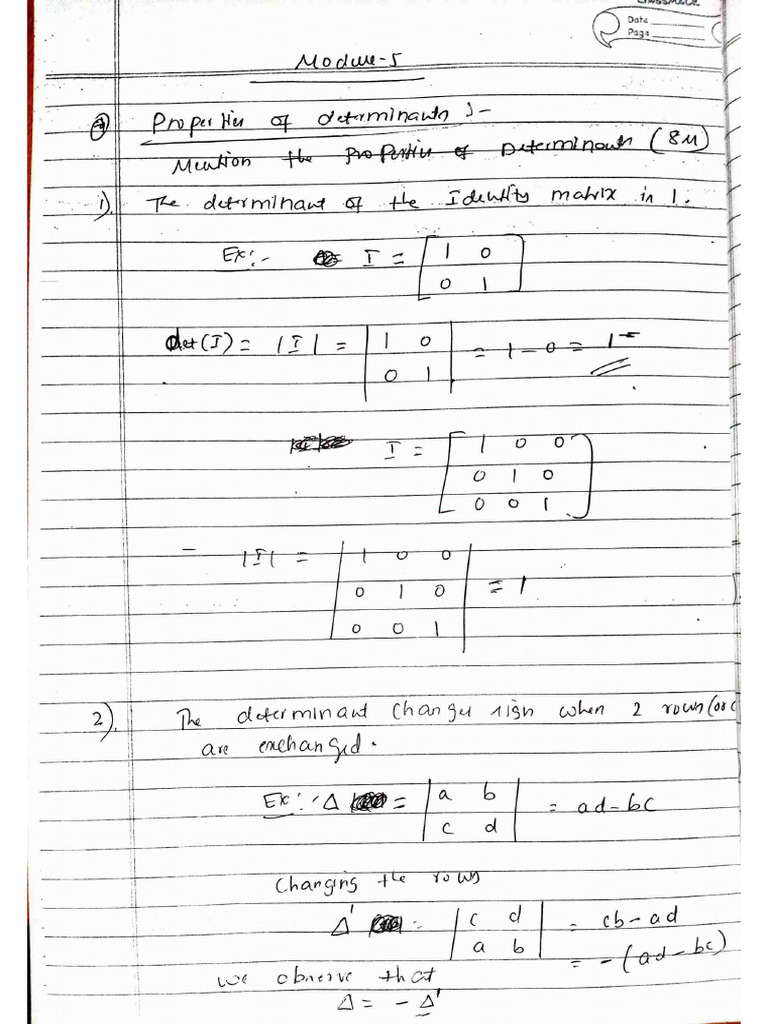 classmate
Date
Page
Module-5
Properties of determinants :-
Mention the properties of Determinants (8M)
1). The determinant of the Identity matrix is 1.
Ex:- I = [ 1 0
0 1 ]
det(I) = |I| = | 1 0 | = 1 - 0 = 1
| 0 1 |
I = [ 1 0 0
0 1 0
0 0 1 ]
|I| = | 1 0 0 |
| 0 1 0 | = 1
| 0 0 1 |
2). The determinant changes sign when 2 rows (or c
are exchanged.
Ex:- Δ = | a b | = ad - bc
| c d |
Changing the rows
Δ' = | c d | = cb - ad
| a b | = - (ad - bc)
we observe that
Δ = - Δ'